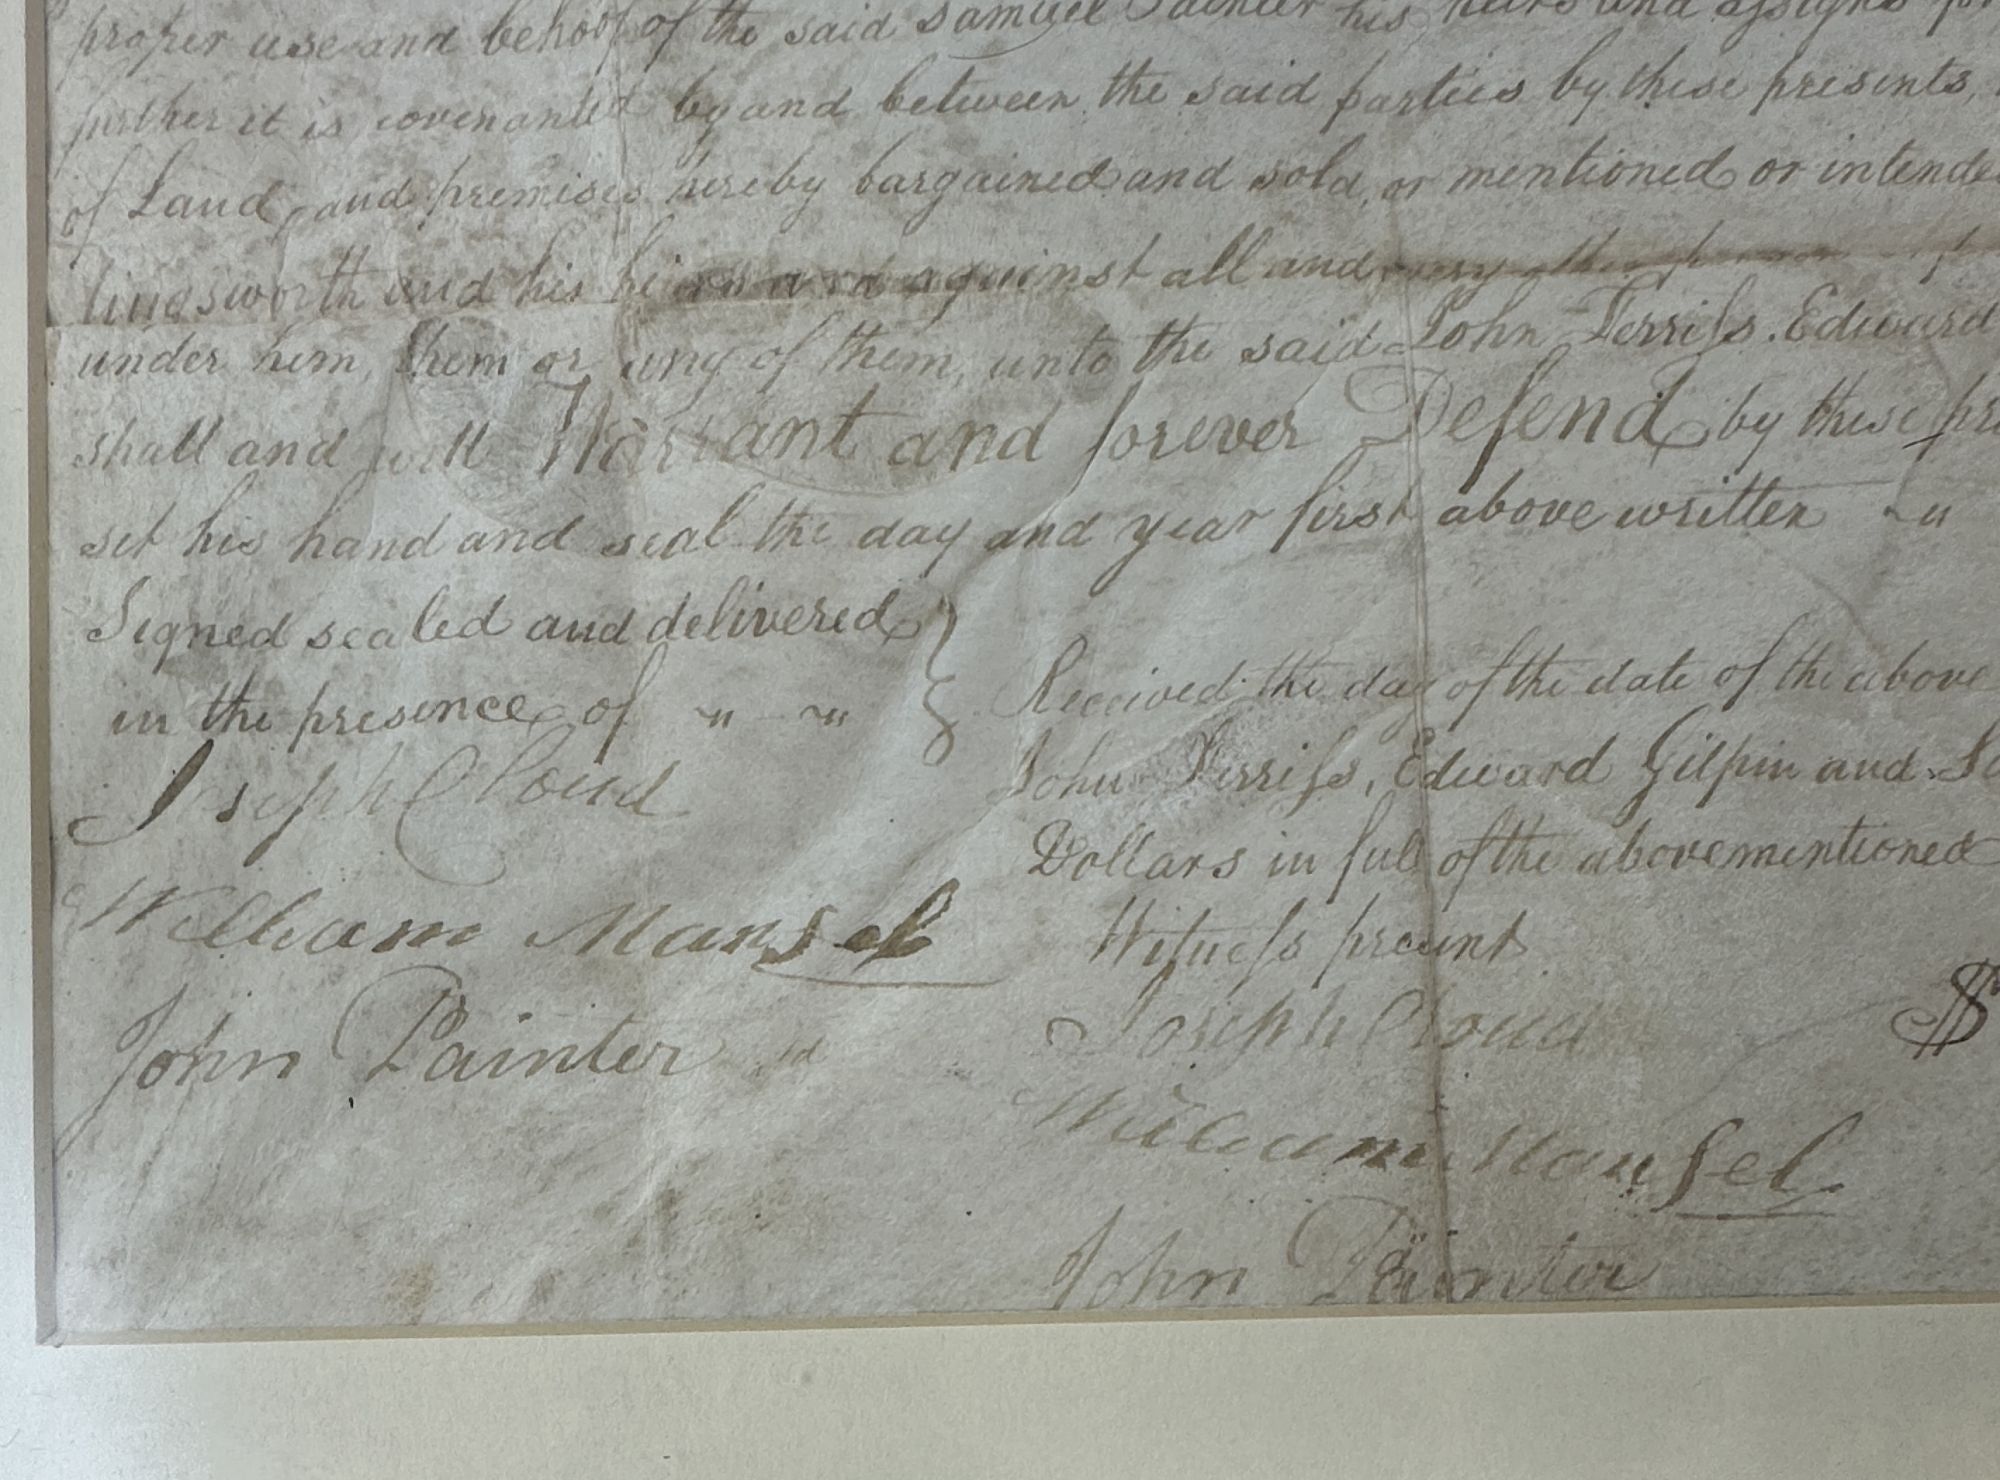 proper use and behoof of the said Samuel Painter his heirs and assigns for
further it is covenanted by and between the said parties by these presents,
of Land, and premises hereby bargained and sold, or mentioned or intende
lingsworth and his heirs and against all and every other person
under him, them or any of them, unto the said John Ferriss. Edward
shall and will Warrant and forever Defend by these pre
set his hand and seal the day and year first above written
Signed sealed and delivered
in the presence of
Joseph Cloud
William Mansel
John Painter
Received the day of the date of the above
John Ferriss, Edward Gilpin and Sa
Dollars in full of the abovementioned
Witness present
Joseph Cloud
$
William Mansel
John Painter